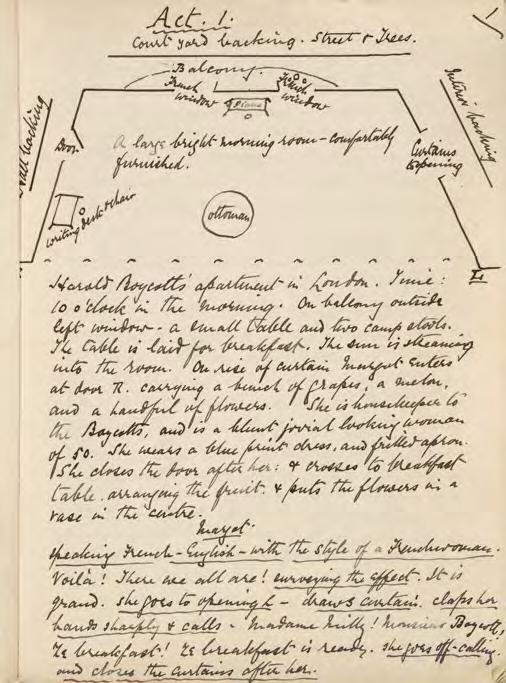 1
Act. 1.
Court yard backing. Street & Trees.
Balcony.
French window
French window
Piano
Wall backing
Interior backing
Door
A large bright morning room - comfortably
furnished.
Curtains
& opening
writing desk & chair
ottoman
Harold Boycott's apartment in London. Time:
10 o'clock in the morning. On balcony outside
left window - a small table and two camp stools.
The table is laid for breakfast. The sun is streaming
into the room. On rise of curtain Margot enters
at door R. carrying a bunch of grapes, a melon,
and a handful of flowers. She is housekeeper to
the Boycotts, and is a blunt jovial looking woman
of 50. She wears a blue print dress, and frilled apron.
She closes the door after her: & crosses to breakfast
table. arranging the fruit. & puts the flowers in a
vase in the centre.
Margot.
speaking French-English - with the style of a Frenchwoman.
Voilà! There we all are! surveying the effect. It is
grand. she goes to opening L - draws curtain. claps her
hands sharply & calls - Madame Milly! Monsieur Boycott,
Ze breakfast! Ze breakfast is ready. she goes off-calling.
and closes the curtains after her.